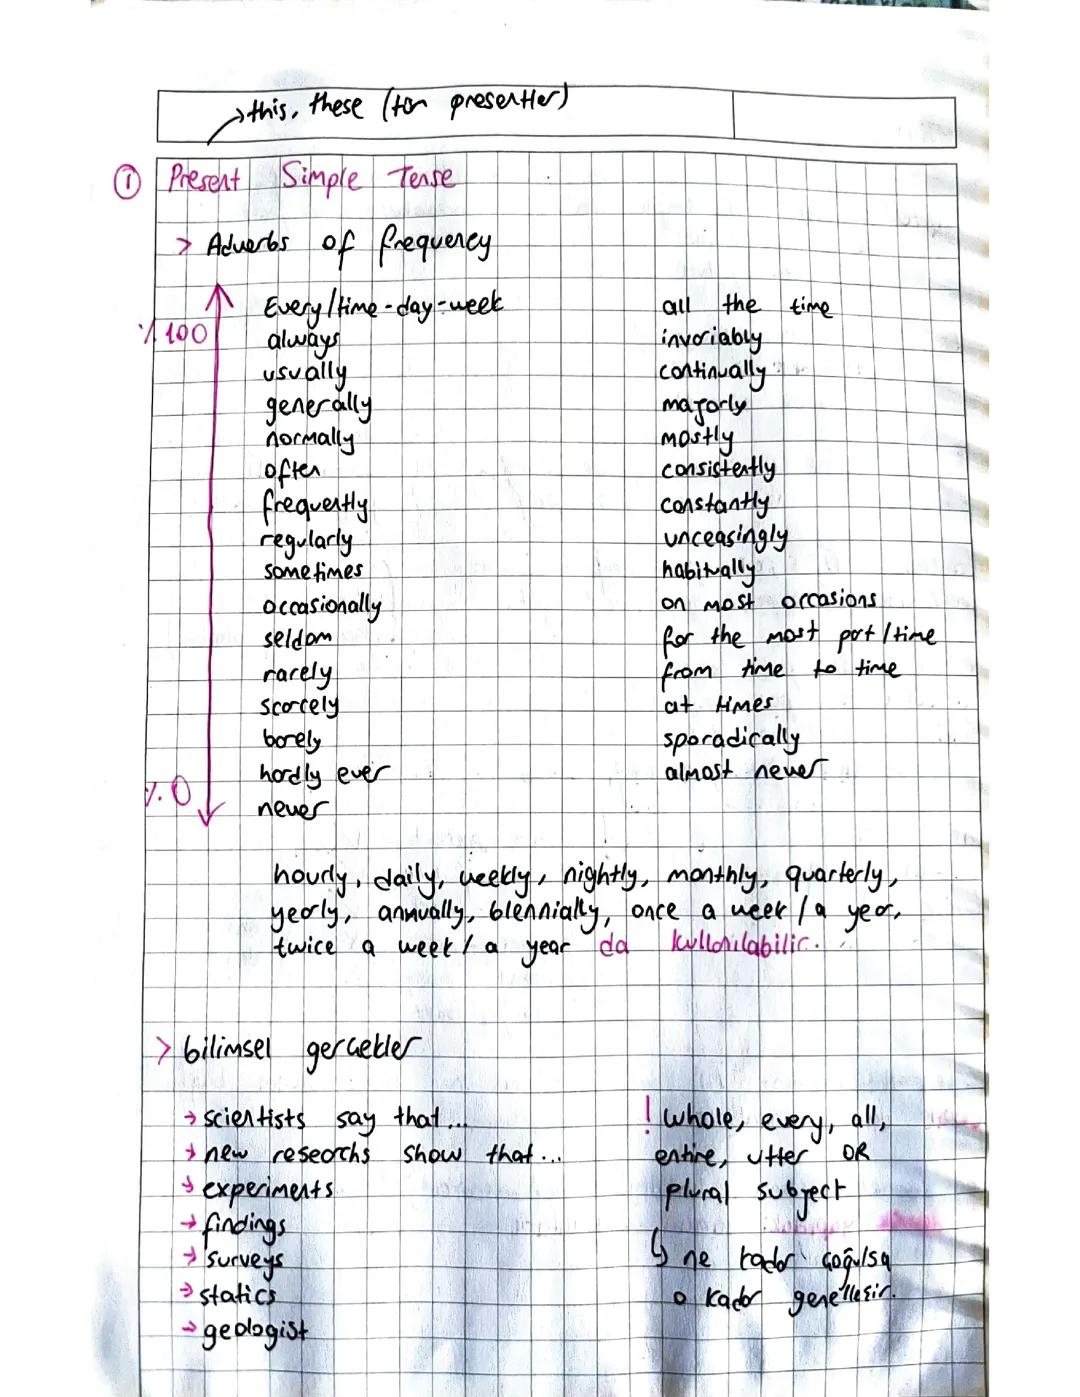 →this, these (tüm presentler)
① Present Simple Tense
> Adverbs of frequency
Every/time-day-week
always
usually
generally
normally
often
frequently
regularly
sometimes
occasionally
seldom
rarely
scarcely
barely
hardly ever
never
%100
%0
all the time
invariably
continually
majorly
mostly
consistently
constantly
unceasingly
habitually
on most occasions
for the most part/time
from time to time
at times
sporadically
almost never
hourly, daily, weekly, nightly, monthly, quarterly,
yearly, annually, biennially, once a week / a year,
twice a week / a year da kullanılabilir.
> bilimsel gerçekler
→ scientists say that...
→ new researchs show that...
→ experiments
→ findings
→ surveys
→ statics
→ geologist
! whole, every, all,
entire, utter OR
plural subject
↳ ne kadar çoğulsa
o kadar genelleşir.